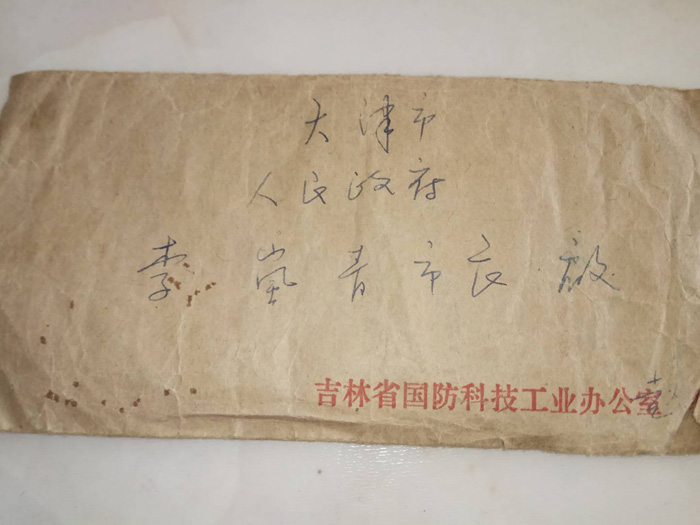 天津市
人民政府
李岚青市长 啟
吉林省国防科技工业办公室